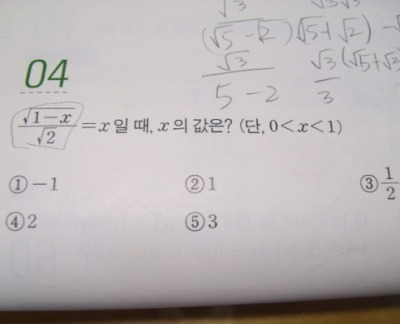 √3 √3√3
(√5-√2)(√5+√2)
√3 √3(√5+√2)
5-2 3
04
√1-x/√2 = x일 때, x의 값은? (단, 0<x<1)
①-1 ②1 ③1/2
④2 ⑤3